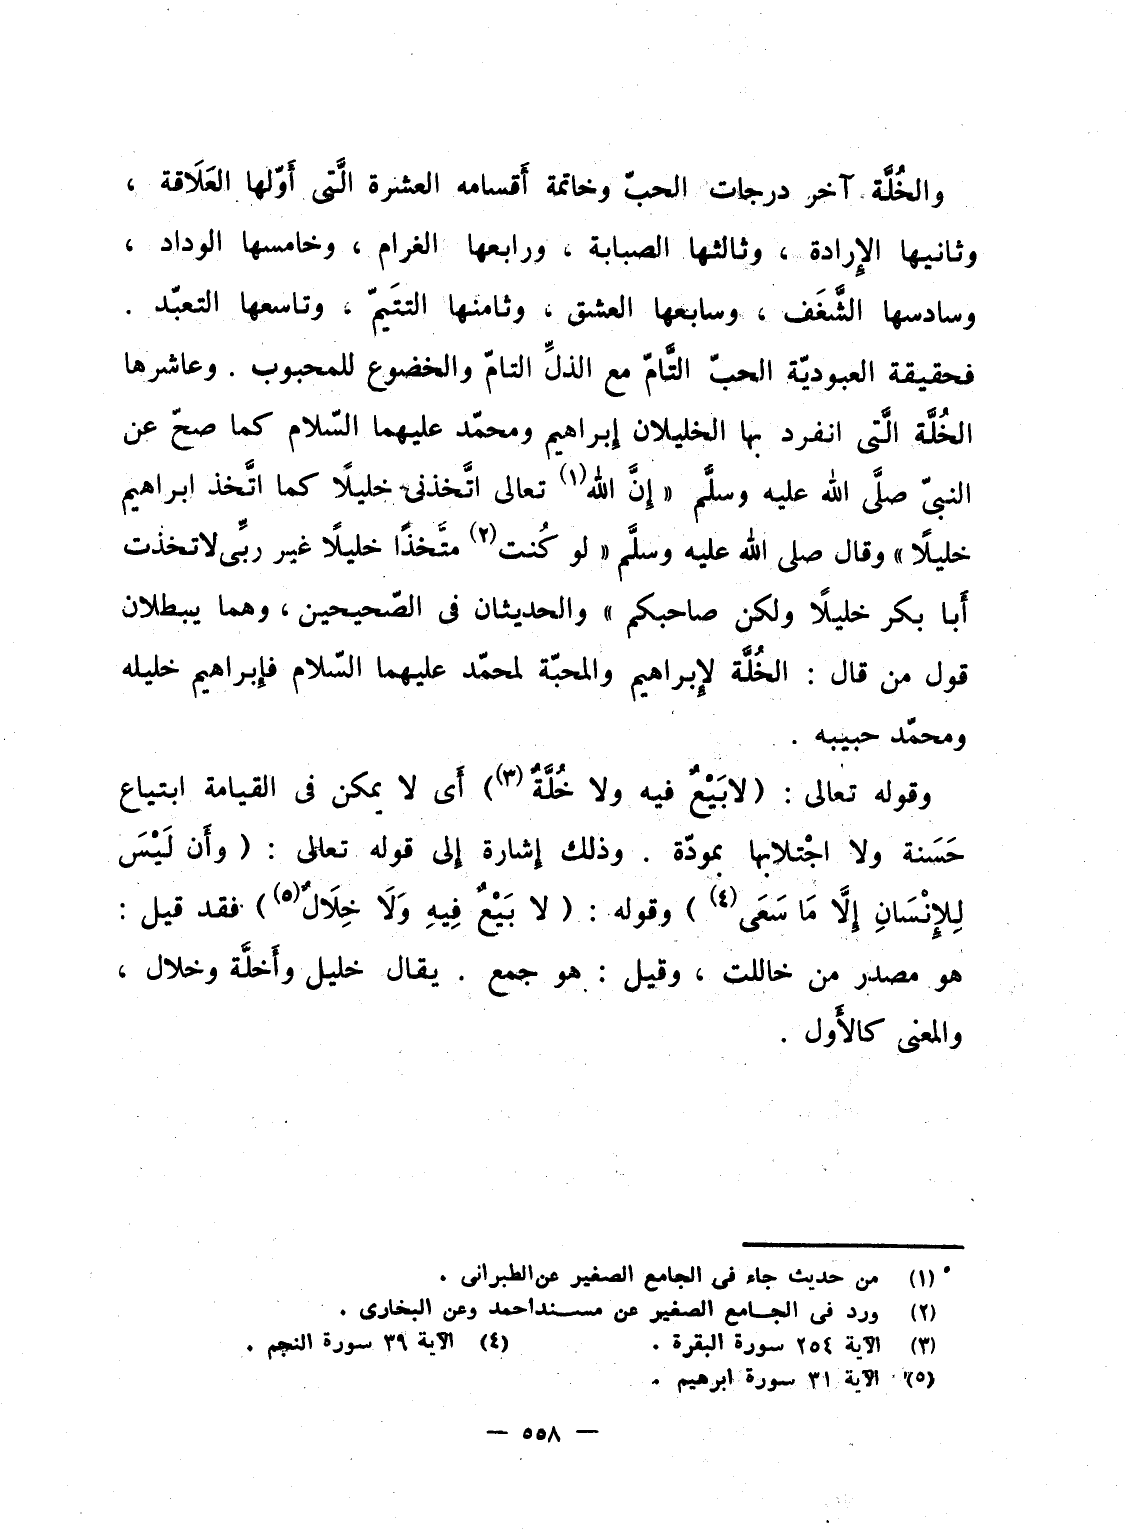 والخُلَّة آخر درجات الحبّ وخاتمة أَقسامه العشرة الَّتى أَوّلها العَلَاقة ،
وثانيها الإِرادة ، وثالثها الصبابة ، ورابعها الغرام ، وخامسها الوداد ،
وسادسها الشَّغَف ، وسابعها العشق ، وثامنها التتَيمّ ، وتاسعها التعبّد .
فحقيقة العبوديّة الحبّ التَّامّ مع الذلِّ التامّ والخضوع للمحبوب . وعاشرها
الخُلَّة الَّتى انفرد بها الخليلان إِبراهيم ومحمّد عليهما السّلام كما صحّ عن
النبىّ صلَّى الله عليه وسلَّم « إِنَّ الله(١) تعالى اتَّخذنى خليلًا كما اتَّخذ ابراهيم
خليلًا » وقال صلى الله عليه وسلَّم « لو كُنت(٢) متَّخذًا خليلًا غير ربِّى لاتخذت
أَبا بكر خليلًا ولكن صاحبكم » والحديثان فى الصّحيحين ، وهما يبطلان
قول من قال : الخُلَّة لإِبراهيم والمحبّة لمحمّد عليهما السّلام فإِبراهيم خليله
ومحمّد حبيبه .
وقوله تعالى : ( لابَيْعٌ فيه ولا خُلَّةٌ (٣)) أَى لا يمكن فى القيامة ابتياع
حَسَنة ولا اجْتلابها بمودّة . وذلك إِشارة إِلى قوله تعالى : ( وأَن لَيْسَ
لِلإِنْسَانِ إِلَّا مَا سَعَى(٤) ) وقوله : ( لا بَيْعٌ فِيهِ وَلَا خِلَالٌ(٥) ) فقد قيل :
هو مصدر من خاللت ، وقيل : هو جمع . يقال خليل وأَخلَّة وخلال ،
والمعنى كالأَول .
(١) من حديث جاء فى الجامع الصغير عن الطبرانى .
(٢) ورد فى الجـامع الصغير عن مسـنداحمد وعن البخارى .
(٣) الآية ٢٥٤ سورة البقرة . (٤) الآية ٣٩ سورة النجم .
(٥) الآية ٣١ سورة ابرهيم .
— ٥٥٨ —